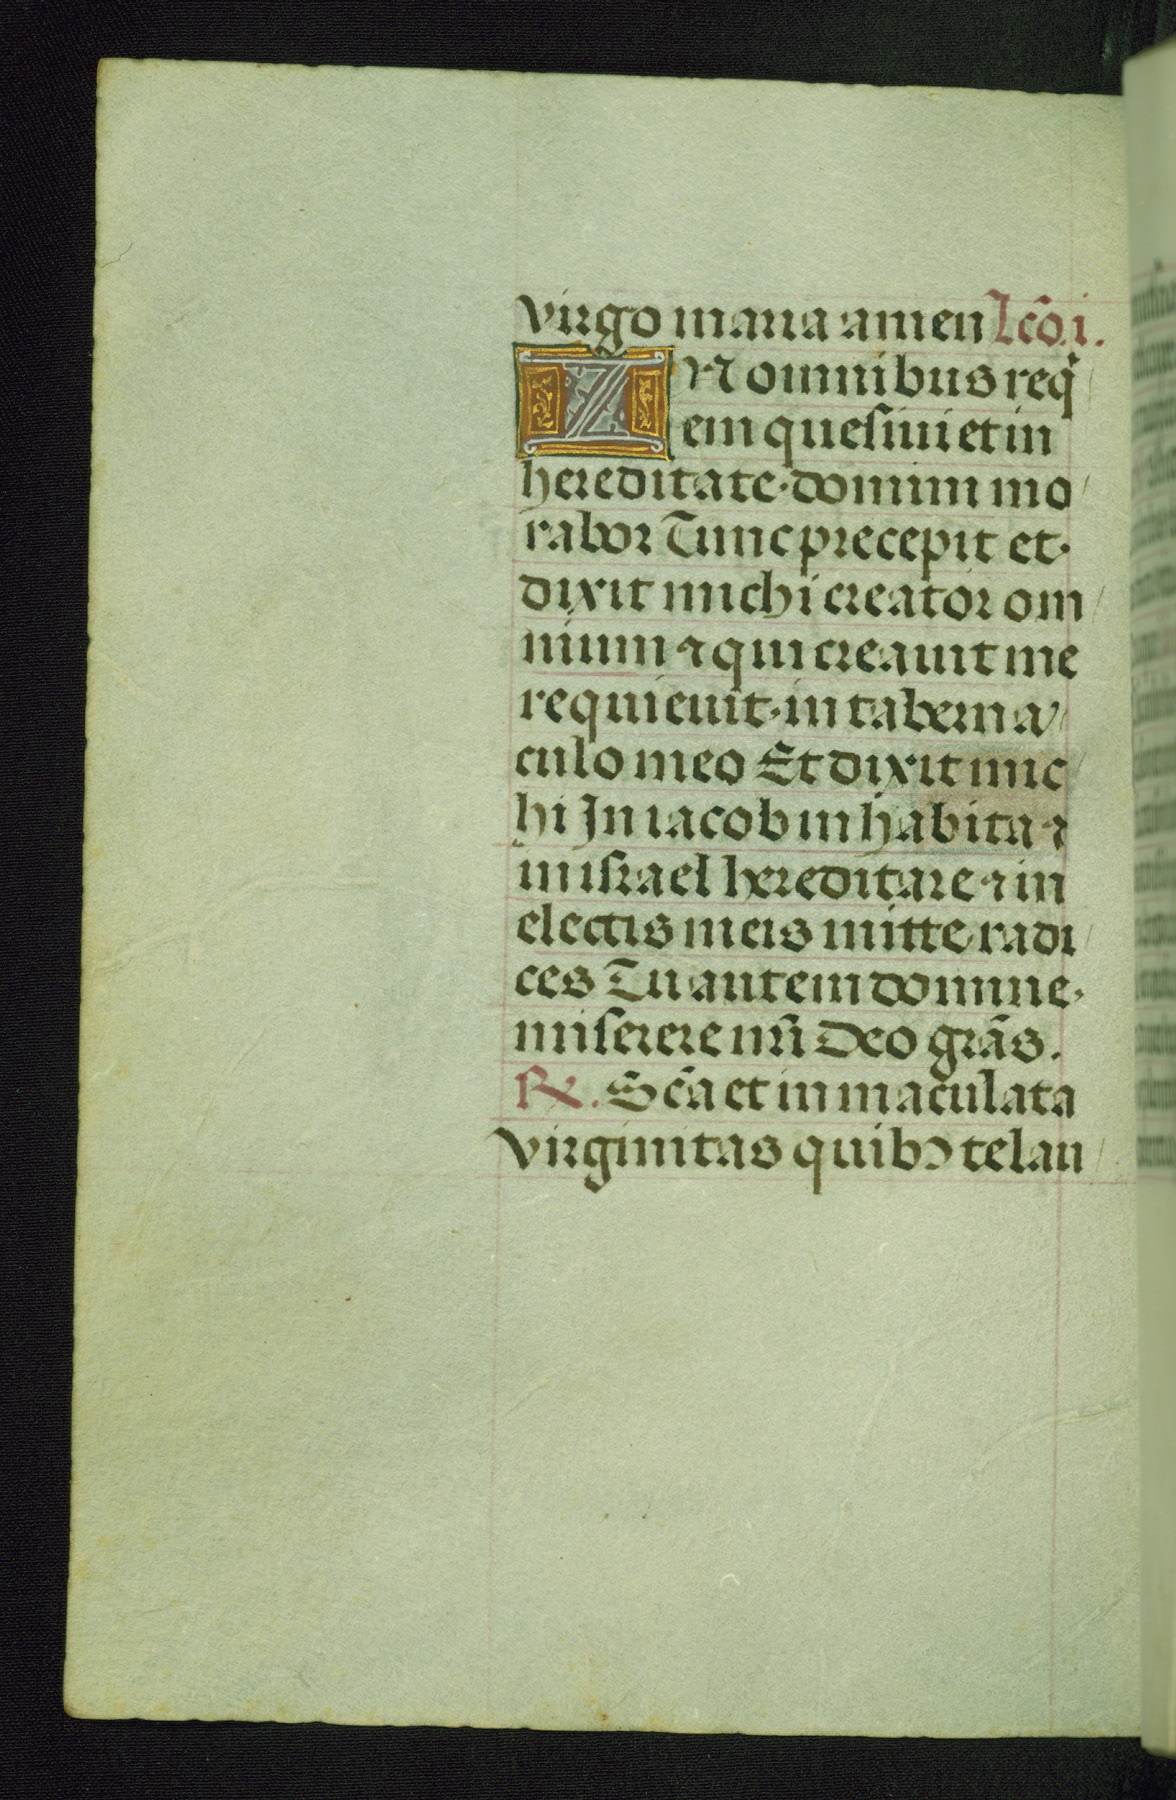 virgo maria amen Lcō.i.
IN omnibus requi
em quesiui et in
hereditate domini mo
rabor Tunc precepit et
dixit michi creator om
nium ⁊ qui creauit me
requieuit in taberna
culo meo Et dixit mic
hi In iacob inhabita ⁊
in israel hereditare ⁊ in
electis meis mitte radi
ces Tu autem domine
miserere nr̄i Deo grās.
℟. Scā et inmaculata
virginitas quibꝰ te lau